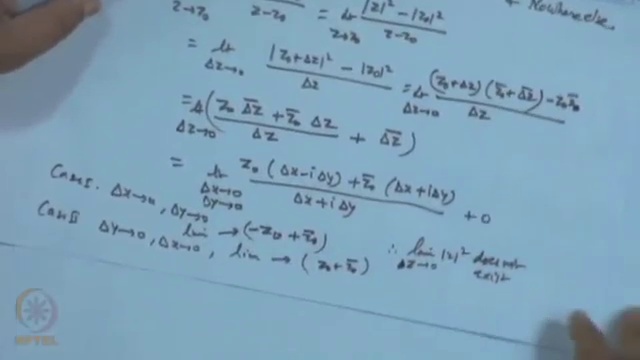 z→z₀ z-z₀ = lt z→z₀ |z|²-|z₀|² / z-z₀ & Nowhere else.
= lt Δz→0 |z₀+Δz|² - |z₀|² / Δz = lt Δz→0 (z₀+Δz)(z̄₀+Δz̄) - z₀z̄₀ / Δz
= lt Δz→0 ( z₀ Δz̄ + z̄₀ Δz / Δz + Δz̄ )
= lt Δx→0 Δy→0 z₀(Δx-iΔy) + z̄₀(Δx+iΔy) / Δx+iΔy + 0
Case I. Δx→0, Δy→0 lim → (-z₀+z̄₀)
Case II Δy→0, Δx→0, lim → (z₀+z̄₀) ∴ lim Δz→0 |z|² does not exist
NPTEL